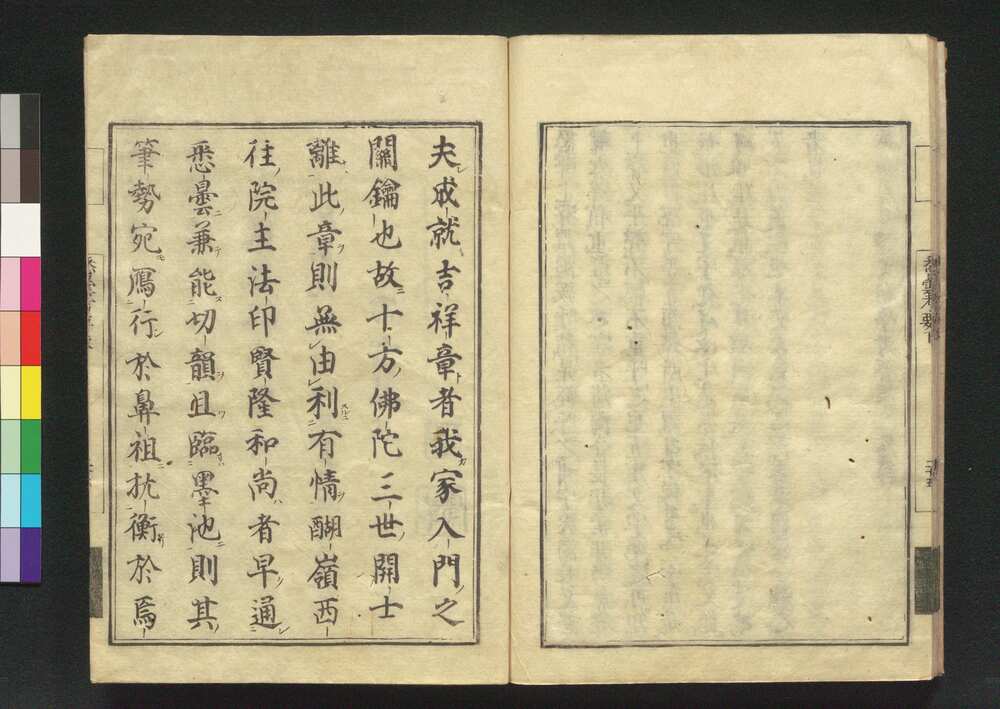 夫成就吉祥章者我家入門之
關鑰也故十方佛陀三世開士
離此章則無由利有情醐嶺西
往院主法印賢隆和尚者早通
悉曇兼能切韻且臨墨池則其
筆勢宛鴈行於鼻祖抗衡於焉